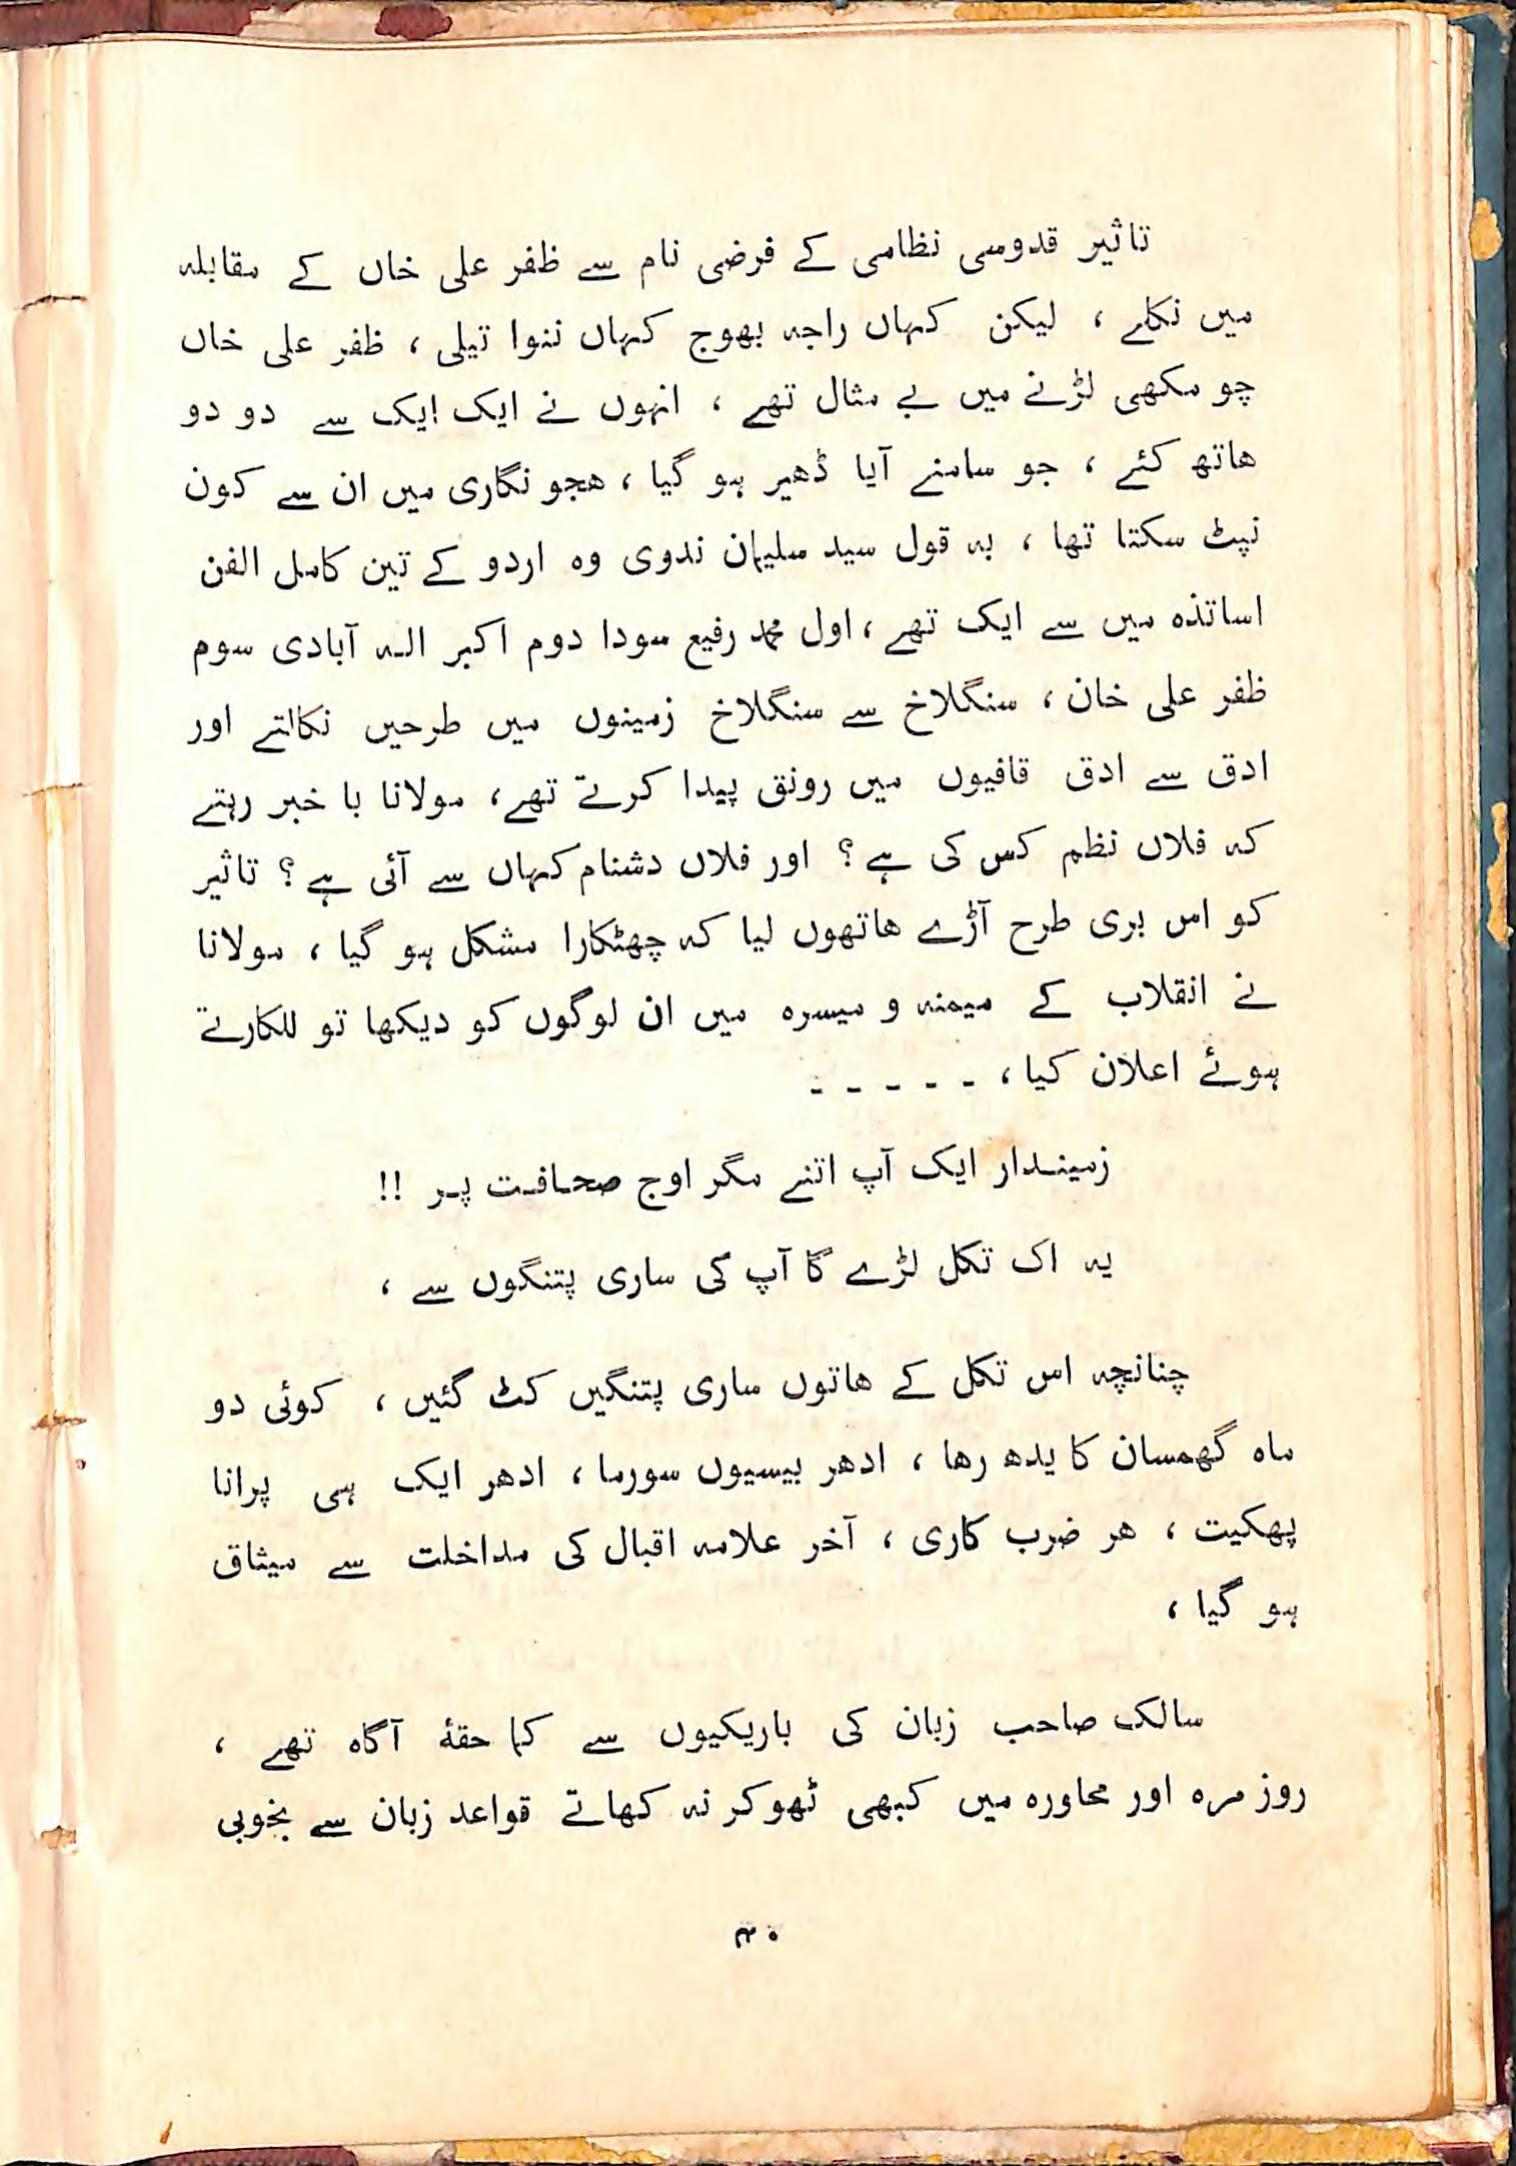 تاثیر قدوسی نظامی کے فرضی نام سے ظفر علی خاں کے مقابلہ
میں نکلے ، لیکن کہاں راجہ بھوج کہاں ننوا تیلی ، ظفر علی خاں
چو مکھی لڑنے میں بے مثال تھے ، انہوں نے ایک ایک سے دو دو
ھاتھ کئے ، جو سامنے آیا ڈھیر ہو گیا ، ھجو نگاری میں ان سے کون
نپٹ سکتا تھا ، بہ قول سید سلیمان ندوی وہ اردو کے تین کامل الفن
اساتذہ میں سے ایک تھے ، اول محمد رفیع سودا دوم اکبر الہ آبادی سوم
ظفر علی خان ، سنگلاخ سے سنگلاخ زمینوں میں طرحیں نکالتے اور
ادق سے ادق قافیوں میں رونق پیدا کرتے تھے ، مولانا با خبر رہتے
کہ فلاں نظم کس کی ہے ؟ اور فلاں دشنام کہاں سے آئی ہے ؟ تاثیر
کو اس بری طرح آڑے ھاتھوں لیا کہ چھٹکارا مشکل ہو گیا ، مولانا
نے انقلاب کے میمنہ و میسرہ میں ان لوگوں کو دیکھا تو للکارتے
ہوئے اعلان کیا ، - - - - -
زمیندار ایک آپ اتنے مگر اوج صحافت پر !!
یہ اک تکل لڑے گا آپ کی ساری پتنگوں سے ،
چنانچہ اس تکل کے ھاتوں ساری پتنگیں کٹ گئیں ، کوئی دو
ماہ گھمسان کا یدھ رھا ، ادھر بیسیوں سورما ، ادھر ایک ہی پرانا
پھکیت ، ھر ضرب کاری ، آخر علامہ اقبال کی مداخلت سے میثاق
ہو گیا ،
سالک صاحب زبان کی باریکیوں سے کما حقۂ آگاہ تھے ،
روز مرہ اور محاورہ میں کبھی ٹھوکر نہ کھاتے قواعد زبان سے بخوبی
۴۰